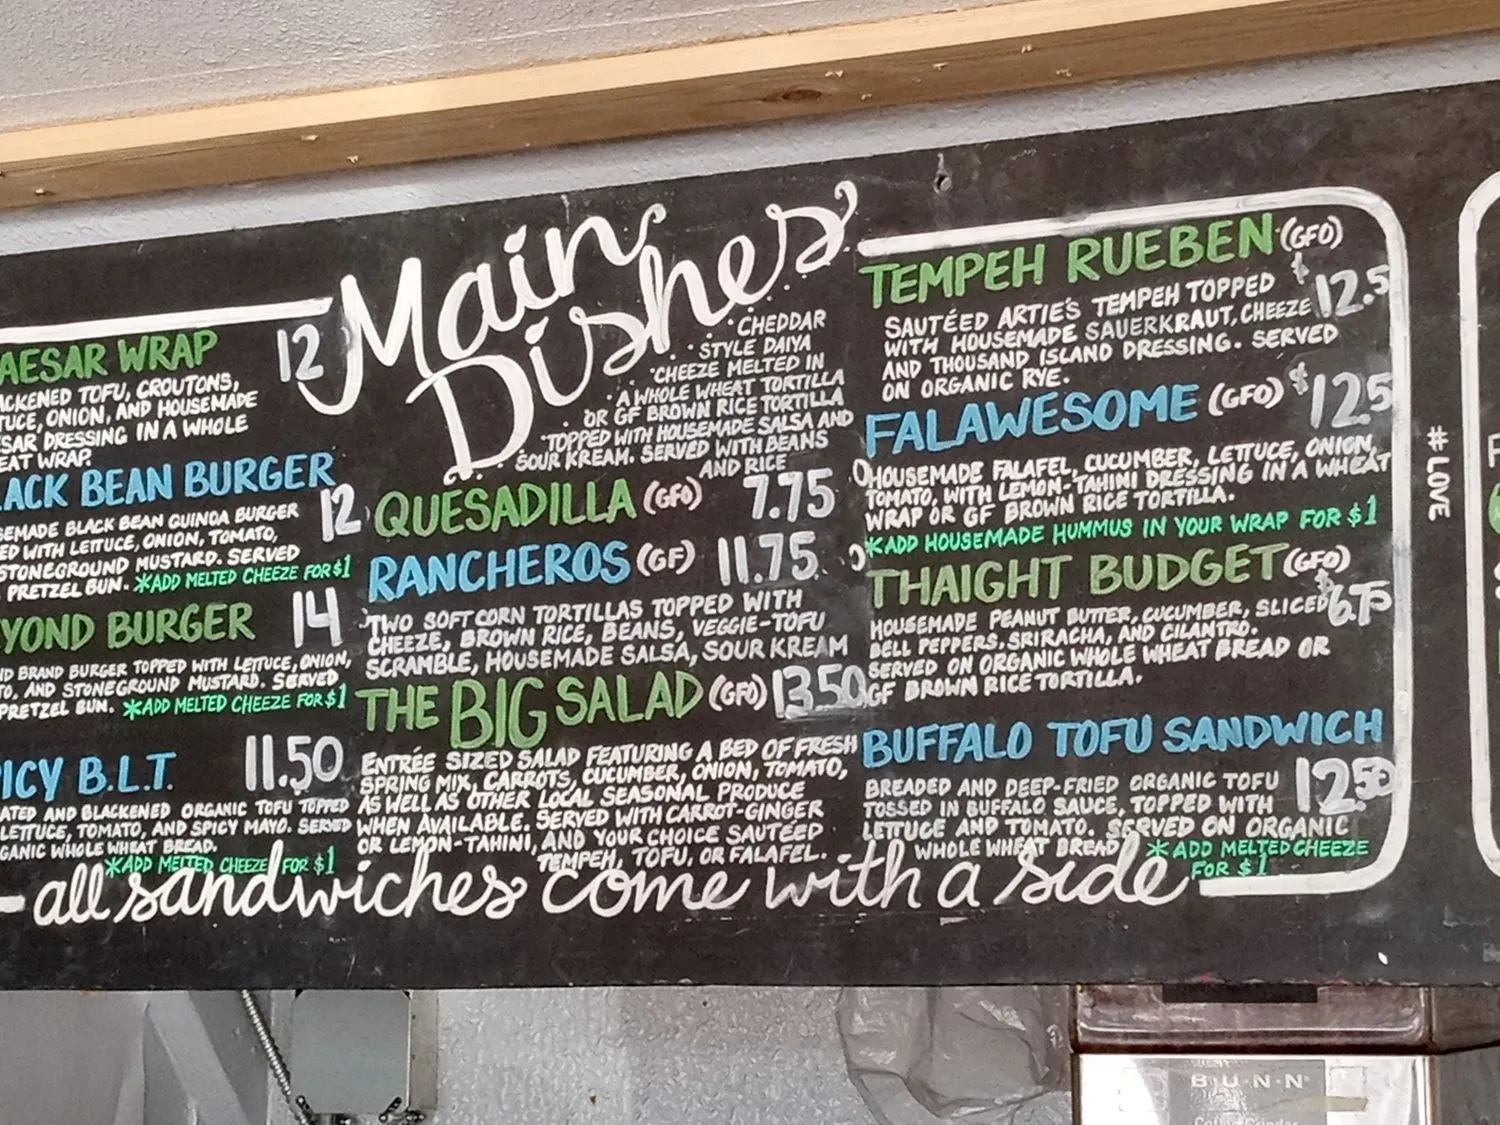 Main
Dishes
AESAR WRAP 12
ACKENED TOFU, CROUTONS,
TUCE, ONION, AND HOUSEMADE
SAR DRESSING IN A WHOLE
EAT WRAP.
LACK BEAN BURGER
12
SEMADE BLACK BEAN QUINOA BURGER
ED WITH LETTUCE, ONION, TOMATO,
STONEGROUND MUSTARD. SERVED
PRETZEL BUN. *ADD MELTED CHEEZE FOR $1
YOND BURGER 14
ND BRAND BURGER TOPPED WITH LETTUCE, ONION,
TO, AND STONEGROUND MUSTARD. SERVED
PRETZEL BUN. *ADD MELTED CHEEZE FOR $1
ICY B.L.T. 11.50
ATED AND BLACKENED ORGANIC TOFU TOPPED
LETTUCE, TOMATO, AND SPICY MAYO. SERVED
GANIC WHOLE WHEAT BREAD.
*ADD MELTED CHEEZE FOR $1
CHEDDAR
STYLE DAIYA
CHEEZE MELTED IN
A WHOLE WHEAT TORTILLA
OR GF BROWN RICE TORTILLA
TOPPED WITH HOUSEMADE SALSA AND
SOUR KREAM. SERVED WITH BEANS
AND RICE
QUESADILLA (GFO) 7.75
RANCHEROS (GF) 11.75
TWO SOFT CORN TORTILLAS TOPPED WITH
CHEEZE, BROWN RICE, BEANS, VEGGIE-TOFU
SCRAMBLE, HOUSEMADE SALSA, SOUR KREAM
THE BIG SALAD (GFO) 13.50
ENTRÉE SIZED SALAD FEATURING A BED OF FRESH
SPRING MIX, CARROTS, CUCUMBER, ONION, TOMATO,
AS WELL AS OTHER LOCAL SEASONAL PRODUCE
WHEN AVAILABLE. SERVED WITH CARROT-GINGER
OR LEMON-TAHINI, AND YOUR CHOICE SAUTÉED
TEMPEH, TOFU, OR FALAFEL.
TEMPEH RUEBEN (GFO)
$12.5
SAUTÉED ARTIE'S TEMPEH TOPPED
WITH HOUSEMADE SAUERKRAUT, CHEEZE
AND THOUSAND ISLAND DRESSING. SERVED
ON ORGANIC RYE.
FALAWESOME (GFO) $12.5
HOUSEMADE FALAFEL, CUCUMBER, LETTUCE, ONION,
TOMATO, WITH LEMON-TAHIMI DRESSING IN A WHEAT
WRAP OR GF BROWN RICE TORTILLA.
*ADD HOUSEMADE HUMMUS IN YOUR WRAP FOR $1
THAIGHT BUDGET (GFO)
$6.75
HOUSEMADE PEANUT BUTTER, CUCUMBER, SLICED
BELL PEPPERS, SRIRACHA, AND CILANTRO.
SERVED ON ORGANIC WHOLE WHEAT BREAD OR
GF BROWN RICE TORTILLA.
BUFFALO TOFU SANDWICH
12.50
BREADED AND DEEP-FRIED ORGANIC TOFU
TOSSED IN BUFFALO SAUCE, TOPPED WITH
LETTUCE AND TOMATO. SERVED ON ORGANIC
WHOLE WHEAT BREAD *ADD MELTED CHEEZE
FOR $1
all sandwiches come with a side
#LOVE
BUNN